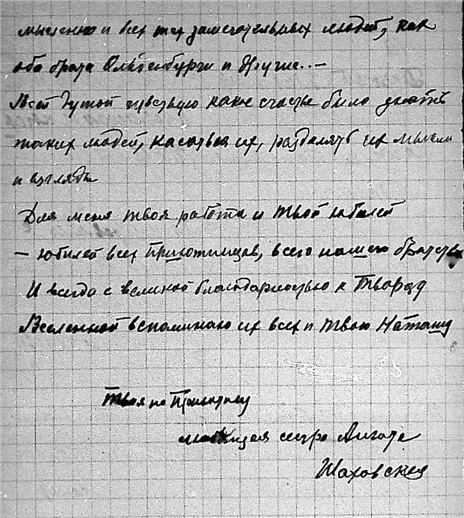 мысленно и всех тех замечательных людей, как
оба брата Ольденбурги и другие.. —
Всей душой чувствую какое счастье было знать
таких людей, касаться их, разделять их мысли
и взгляды
Для меня твоя работа и твой юбилей
— юбилей всех Приютинцев, всего нашего братства
И всегда с великой благодарностью к Творцу
Вселенной вспоминаю их всех и твою Наташу
Твоя по Приютину
сестра
Шаховская